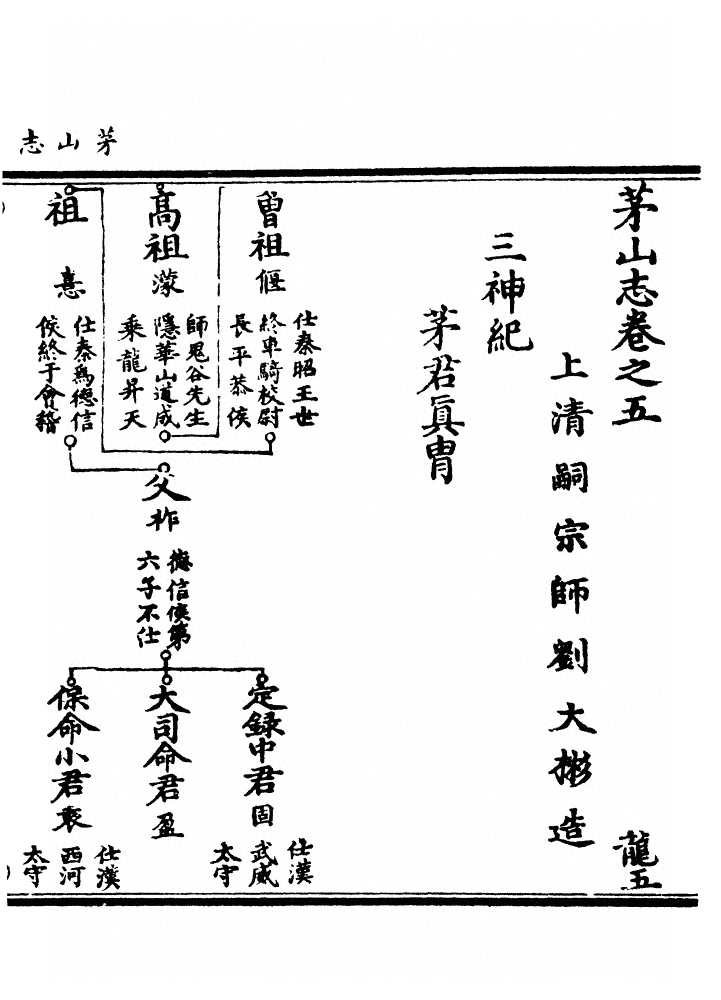 茅山志
茅山志卷之五
龍五
上清嗣宗師劉大彬造
三神紀
茅君眞胄
曾祖偃
仕秦昭王世
終車騎校尉
長平恭侯
高祖濛
師鬼谷先生
隱華山道成
乘龍昇天
祖憙
仕秦爲德信
侯終于會稽
父祚
德信侯第
六子不仕
定録中君固
仕漢
武威
太守
大司命君盈
保命小君衷
仕漢
西河
太守